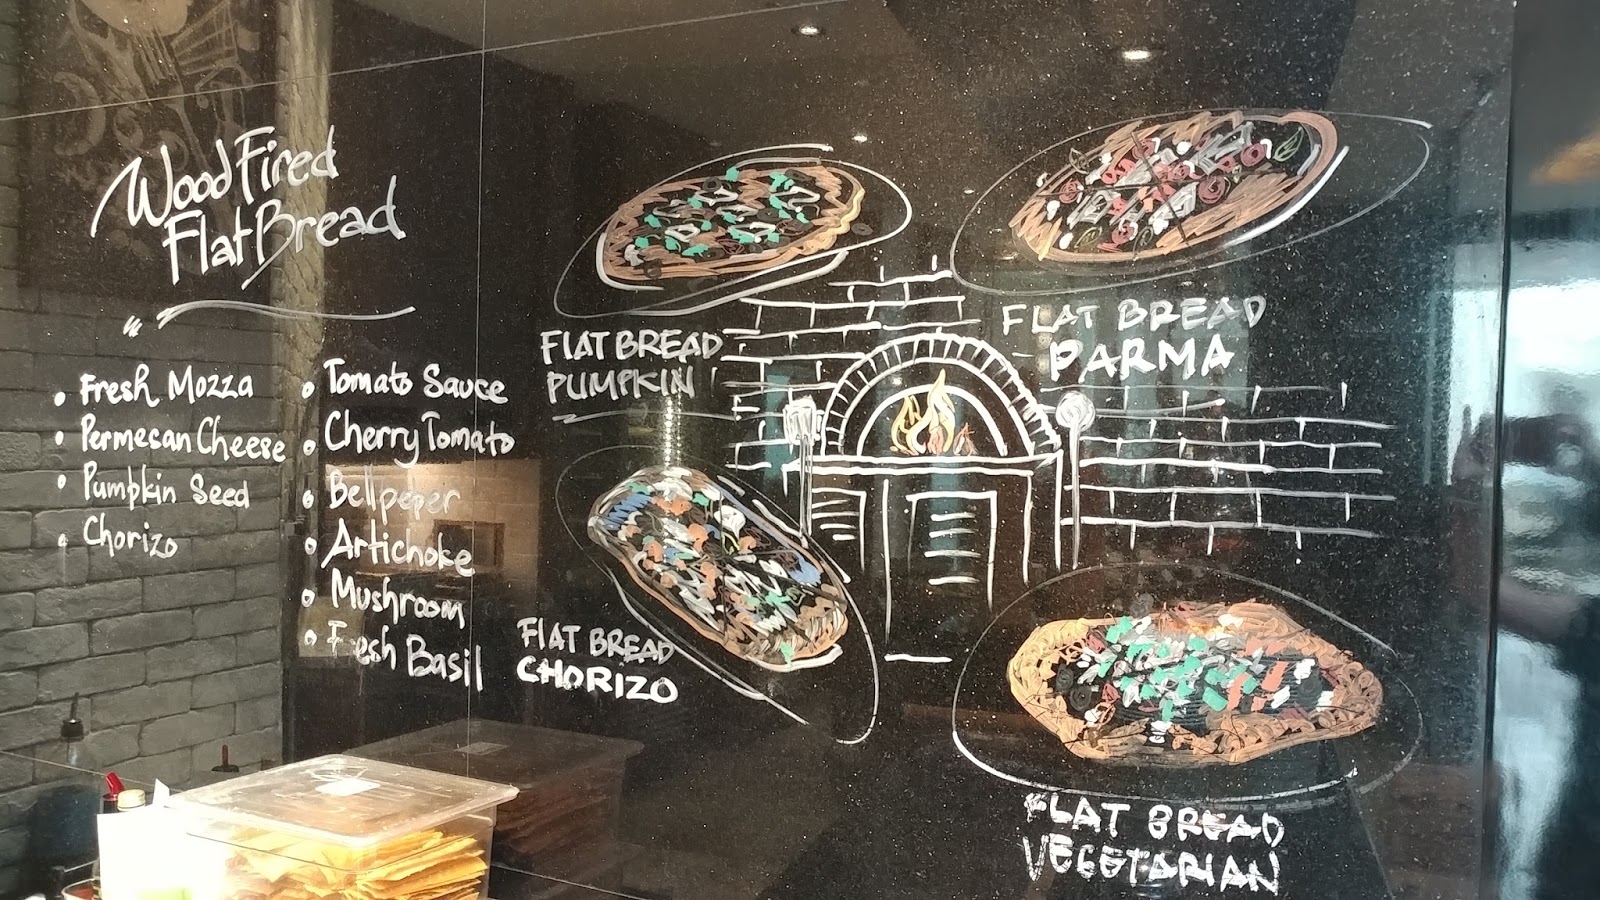 Wood Fired
Flat Bread
• Fresh Mozza
• Permesan Cheese
• Pumpkin Seed
• Chorizo
• Tomato Sauce
• Cherry Tomato
• Bellpeper
• Artichoke
• Mushroom
• Fresh Basil
FLAT BREAD
PUMPKIN
FLAT BREAD
PARMA
FLAT BREAD
CHORIZO
FLAT BREAD
VEGETARIAN